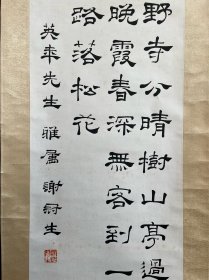 野寺分晴樹山亭過
晚霞春深無客到一
路落松花
英年先生雅屬 謝冠生